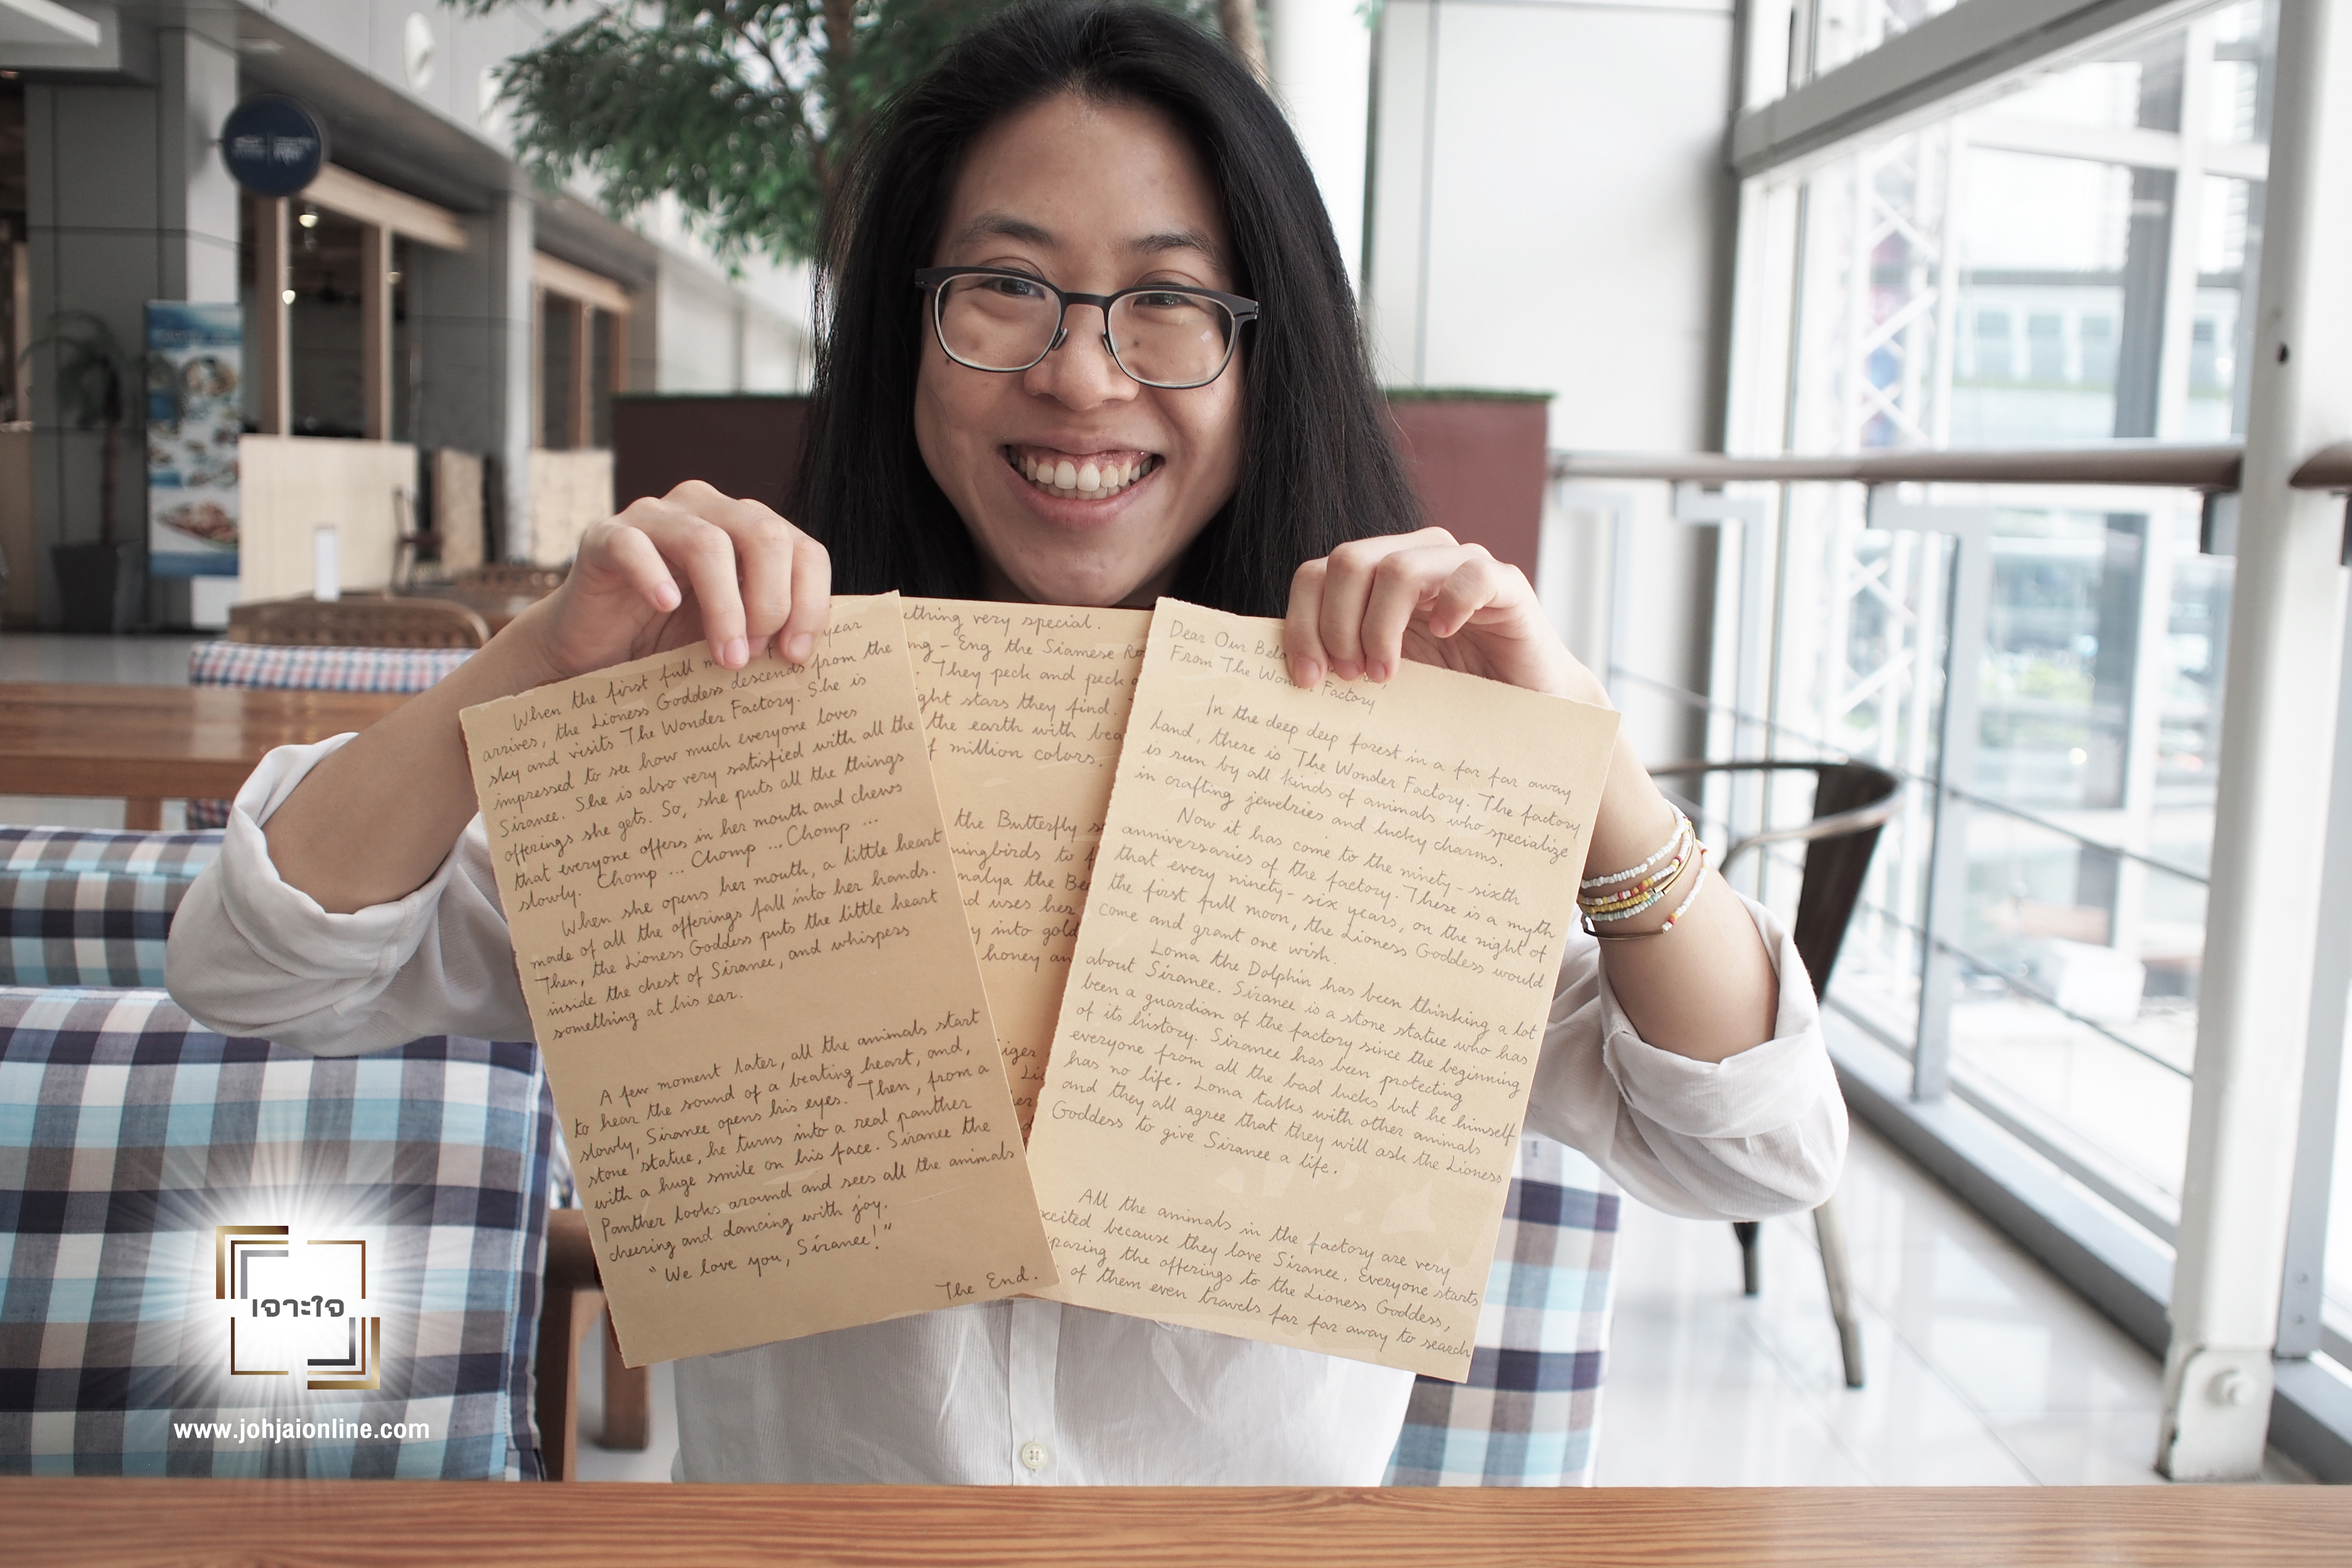 When the first full m year
arrives, the Lioness Goddess descends from the
sky and visits The Wonder Factory. She is
impressed to see how much everyone loves
Siranee. She is also very satisfied with all the
offerings she gets. So, she puts all the things
that everyone offers in her mouth and chews
slowly. Chomp ... Chomp ... Chomp ...
When she opens her mouth, a little heart
made of all the offerings fall into her hands.
Then, the Lioness Goddess puts the little heart
inside the chest of Siranee, and whispers
something at his ear.
A few moment later, all the animals start
to hear the sound of a beating heart, and,
slowly, Siranee opens his eyes. Then, from a
stone statue, he turns into a real panther
with a huge smile on his face. Siranee the
Panther looks around and sees all the animals
cheering and dancing with joy.
"We love you, Siranee!"
The End.
ething very special.
ng - Eng the Siamese Ro
. They peck and peck
ght stars they find.
the earth with bea
f million colors.
the Butterfly s
mingbirds to f
malya the Bea
nd uses her
y into gold
honey an
iger
Lio
her
Dear Our Belo
From The Wonder Factory
In the deep deep forest in a far far away
land, there is The Wonder Factory. The factory
is run by all kinds of animals who specialize
in crafting jewelries and lucky charms.
Now it has come to the ninety-sixth
anniversaries of the factory. There is a myth
that every ninety-six years, on the night of
the first full moon, the Lioness Goddess would
come and grant one wish.
Loma the Dolphin has been thinking a lot
about Siranee. Siranee is a stone statue who has
been a guardian of the factory since the beginning
of its history. Siranee has been protecting
everyone from all the bad lucks but he himself
has no life. Loma talks with other animals
and they all agree that they will ask the Lioness
Goddess to give Siranee a life.
All the animals in the factory are very
xcited because they love Siranee. Everyone starts
paring the offerings to the Lioness Goddess,
of them even travels far far away to search
เจาะใจ
www.johjaionline.com